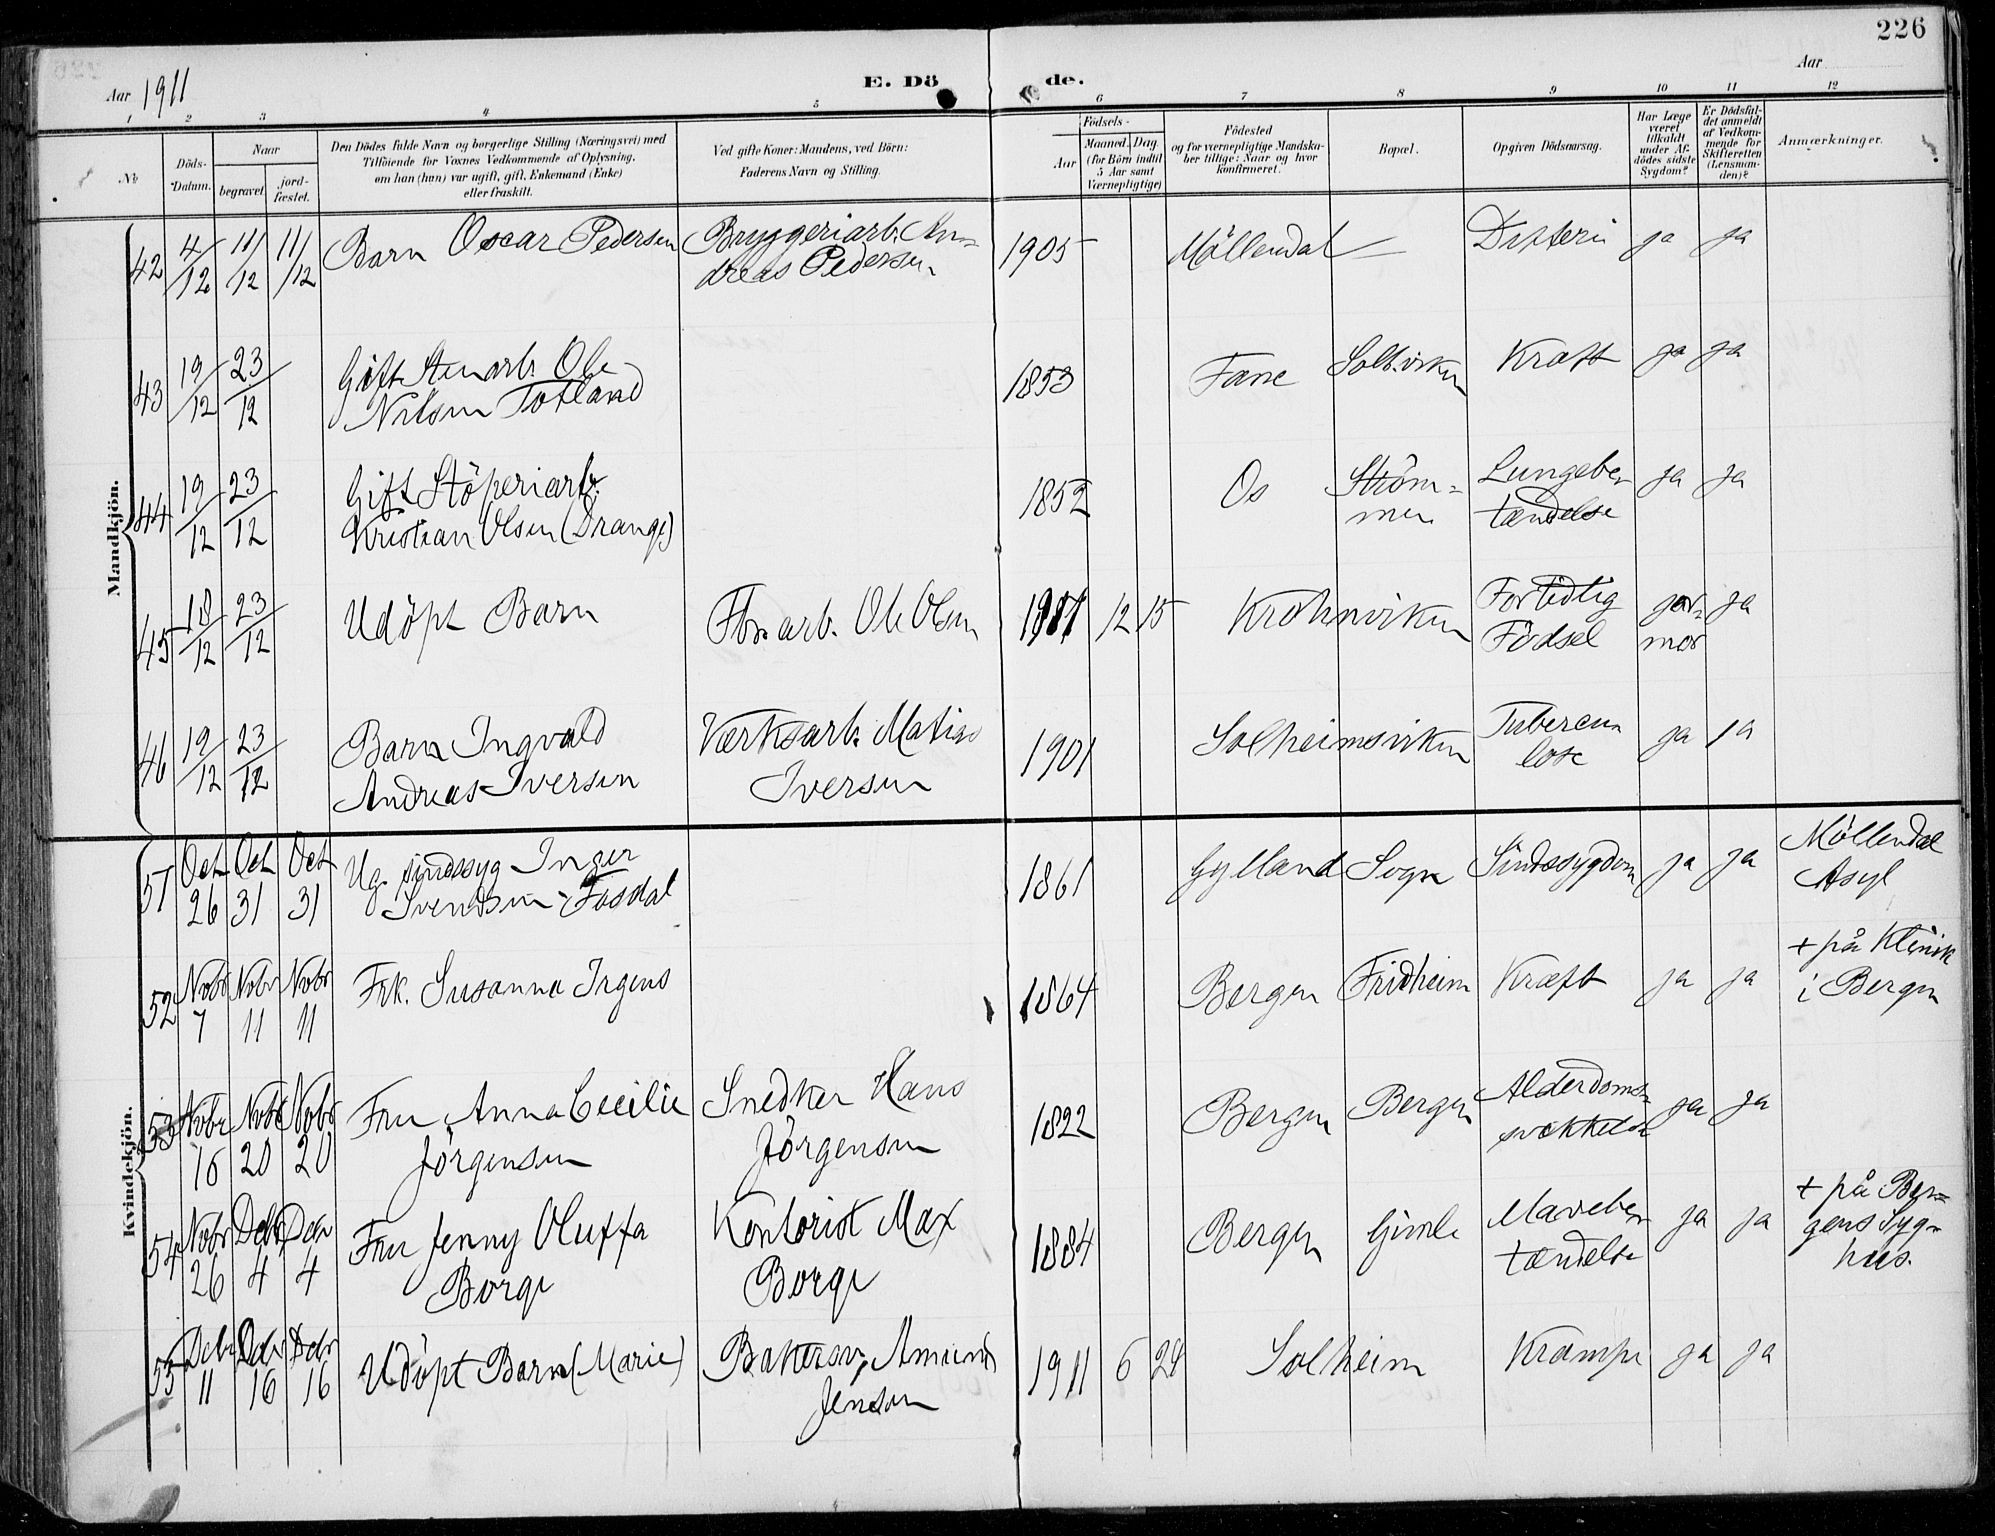 226
Aar 1911
E. Döde.
Aar
1 2 3 4 5 6 7 8 9 10 11 12
No.
Döds-Datum.
Naar
begravet.
jordfæstet.
Den Dödes fulde Navn og borgerlige Stilling (Næringsvei) med
Tilföiende for Voxnes Vedkommende af Oplysning,
om han (hun) var ugift, gift, Enkemand (Enke)
eller fraskilt.
Ved gifte Koner: Mandens, ved Börn:
Faderens Navn og Stilling.
Födsels-
Aar
Maaned. Dag.
(for Börn indtil
5 Aar samt
Værnepligtige)
Födested
og for værnepligtige Mandska-
ber tillige: Naar og hvor
konfirmeret.
Bopæl.
Opgiven Dödsaarsag.
Har Læge
været
tilkaldt
under Af-
dödes sidste
Sygdom?
Er Dödsfal-
det anmeldt
af Vedkom-
mende for
Skifteretten
(Lensman-
den)?
Anmærkninger.
Mandkjön.
42 4/12 11/12 11/12 Barn Oscar Pedersen Bryggeriarb. An-
dreas Pedersen 1905 Möllendal — Difteri ja ja
43 19/12 23/12 Gift Stenarb. Ole
Nilsen Totland 1853 Fane Solh.viken Kræft ja ja
44 19/12 23/12 Gift Stöperiarb.
Kristian Olsen (Drange) 1852 Os Ström-
men Lungebe-
tændelse ja ja
45 18/12 23/12 Udöpt Barn Fbr. arb. Ole Olsen 1911 12 15 Krohnviken Fortidlig
Födsel jor-
mor ja
46 19/12 23/12 Barn Ingvald
Andreas Iversen Værksarb. Matias
Iversen 1901 Solheimsviken Tubercu-
lose ja ja
Kvindekjön.
51 Oct 26 Oct 31 Oct 31 Ug. sindssyg Inger
Svendsen Fosdal 1861 Gylland Sogn Sindssygdom ja ja Möllendal
Asyl
52 Nobr 7 Nobr 11 Nobr 11 Frk. Susanna Irgens 1864 Bergen Fridheim Kræft ja ja + på Klinik
i Bergen
53 Nobr 16 Nobr 20 Nobr 20 Fru Anna Cecilie
Jörgensen Snedker Hans
Jörgensen 1822 Bergen Bergen Alderdoms-
svækkelse ja ja
54 Nobr 26 Debr 4 Debr 4 Fru Jenny Oluffa
Borge Kontorist Max
Borge 1884 Bergen Gimle Mavebe-
tændelse ja ja + på Ber-
gens Syge-
hus.
55 Debr 11 Debr 16 Debr 16 Udöpt Barn (Marie) Bakersv. Amund
Jensen 1911 6 24 Solheim Krampe ja ja